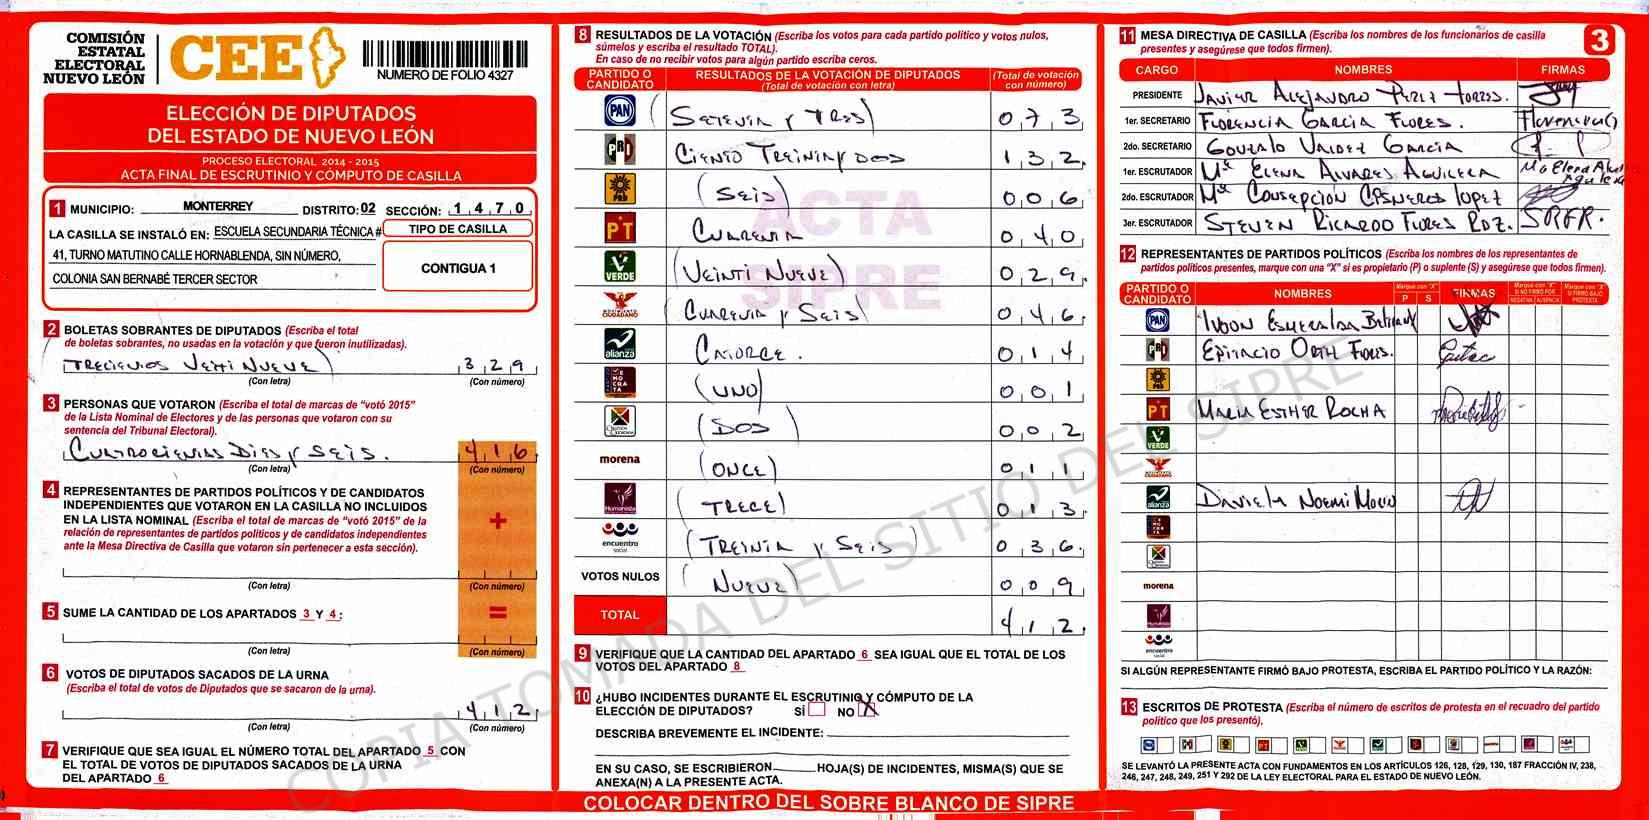 COMISIÓN
ESTATAL
ELECTORAL
NUEVO LEÓN
CEE
NUMERO DE FOLIO 4327
ELECCIÓN DE DIPUTADOS
DEL ESTADO DE NUEVO LEÓN
PROCESO ELECTORAL 2014 - 2015
ACTA FINAL DE ESCRUTINIO Y CÓMPUTO DE CASILLA
1 MUNICIPIO: MONTERREY DISTRITO: 02 SECCIÓN: 1 4 7 0
LA CASILLA SE INSTALÓ EN: ESCUELA SECUNDARIA TÉCNICA #
41, TURNO MATUTINO CALLE HORNABLENDA, SIN NÚMERO,
COLONIA SAN BERNABÉ TERCER SECTOR
TIPO DE CASILLA
CONTIGUA 1
2 BOLETAS SOBRANTES DE DIPUTADOS (Escriba el total
de boletas sobrantes, no usadas en la votación y que fueron inutilizadas).
(Trecientos Veiti Nueve) 3 2 9
(Con letra) (Con número)
3 PERSONAS QUE VOTARON (Escriba el total de marcas de "votó 2015"
de la Lista Nominal de Electores y de las personas que votaron con su
sentencia del Tribunal Electoral).
Cuatrocientas Dies y Seis. 4 1 6
(Con letra) (Con número)
4 REPRESENTANTES DE PARTIDOS POLÍTICOS Y DE CANDIDATOS
INDEPENDIENTES QUE VOTARON EN LA CASILLA NO INCLUIDOS
EN LA LISTA NOMINAL (Escriba el total de marcas de "votó 2015" de la
relación de representantes de partidos políticos y de candidatos independientes
ante la Mesa Directiva de Casilla que votaron sin pertenecer a esta sección).
+
(Con letra) (Con número)
5 SUME LA CANTIDAD DE LOS APARTADOS 3 Y 4:
=
(Con letra) (Con número)
6 VOTOS DE DIPUTADOS SACADOS DE LA URNA
(Escriba el total de votos de Diputados que se sacaron de la urna).
4 1 2.
(Con letra) (Con número)
7 VERIFIQUE QUE SEA IGUAL EL NÚMERO TOTAL DEL APARTADO 5 CON
EL TOTAL DE VOTOS DE DIPUTADOS SACADOS DE LA URNA
DEL APARTADO 6
8 RESULTADOS DE LA VOTACIÓN (Escriba los votos para cada partido político y votos nulos,
súmelos y escriba el resultado TOTAL).
En caso de no recibir votos para algún partido escriba ceros.
PARTIDO O CANDIDATO
RESULTADOS DE LA VOTACIÓN DE DIPUTADOS
(Total de votación con letra)
(Total de votación con número)
PAN (Setenta y Tres) 0 7 3
PRI Ciento Treinta y dos 1 3 2.
PRD (Seis) 0 0 6
PT Cuarenta 0 4 0
VERDE (Veinti Nueve) 0 2 9.
MOVIMIENTO CIUDADANO (Cuarenta y Seis) 0 4 6.
alianza Catorce. 0 1 4
DEMOCRATA (UNO) 0 0 1
(DOS) 0 0 2
morena (ONCE) 0 1 1
Humanista (TRECE) 0 1 3.
encuentro social (Treinta y Seis) 0 3 6.
VOTOS NULOS (Nueve) 0 0 9
TOTAL 4 1 2.
9 VERIFIQUE QUE LA CANTIDAD DEL APARTADO 6 SEA IGUAL QUE EL TOTAL DE LOS
VOTOS DEL APARTADO 8
10 ¿HUBO INCIDENTES DURANTE EL ESCRUTINIO Y CÓMPUTO DE LA
ELECCIÓN DE DIPUTADOS? SÍ NO X
DESCRIBA BREVEMENTE EL INCIDENTE:
EN SU CASO, SE ESCRIBIERON HOJA(S) DE INCIDENTES, MISMA(S) QUE SE
ANEXA(N) A LA PRESENTE ACTA.
COLOCAR DENTRO DEL SOBRE BLANCO DE SIPRE
ACTA
SIPRE
COPIA TOMADA DEL SITIO DEL SIPRE
11 MESA DIRECTIVA DE CASILLA (Escriba los nombres de los funcionarios de casilla
presentes y asegúrese que todos firmen).
3
CARGO NOMBRES FIRMAS
PRESIDENTE Javier Alejandro Perez Torres.
1er. SECRETARIO Florencia Garcia Flores.
2do. SECRETARIO Gonzalo Valdez Garcia
1er. ESCRUTADOR Ma Elena Alvares Aguilera
2do. ESCRUTADOR Ma Consepción Cisneros Lopez
3er. ESCRUTADOR Steven Ricardo Flores Rdz. SRFR.
12 REPRESENTANTES DE PARTIDOS POLÍTICOS (Escriba los nombres de los representantes de
partidos políticos presentes, marque con una "X" si es propietario (P) o suplente (S) y asegúrese que todos firmen).
PARTIDO O CANDIDATO
NOMBRES
Marque con "X"
P S
FIRMAS
Marque con "X"
SI NO FIRMÓ POR
NEGATIVA AUSENCIA
Marque con "X"
SI FIRMÓ BAJO
PROTESTA
PAN Ivoon Esmeralda
PRI Epitacio Ortiz Flores.
PRD
PT Maria Esther Rocha
VERDE
alianza Daniela Noemi
morena
encuentro social
SI ALGÚN REPRESENTANTE FIRMÓ BAJO PROTESTA, ESCRIBA EL PARTIDO POLÍTICO Y LA RAZÓN:
13 ESCRITOS DE PROTESTA (Escriba el número de escritos de protesta en el recuadro del partido
político que los presentó).
SE LEVANTÓ LA PRESENTE ACTA CON FUNDAMENTOS EN LOS ARTÍCULOS 126, 128, 129, 130, 187 FRACCIÓN IV, 238,
246, 247, 248, 249, 251 Y 292 DE LA LEY ELECTORAL PARA EL ESTADO DE NUEVO LEÓN.